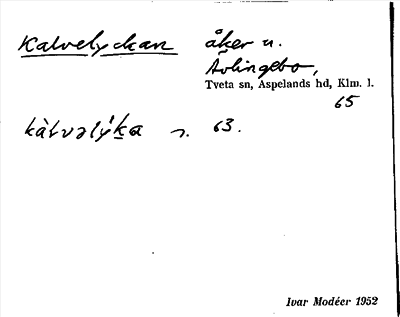 Kalvelyckan åker u.
Ävlingebo,
Tveta sn, Aspelands hd, Klm. l.
65
kàlvəlýka n. 63.
Ivar Modéer 1952